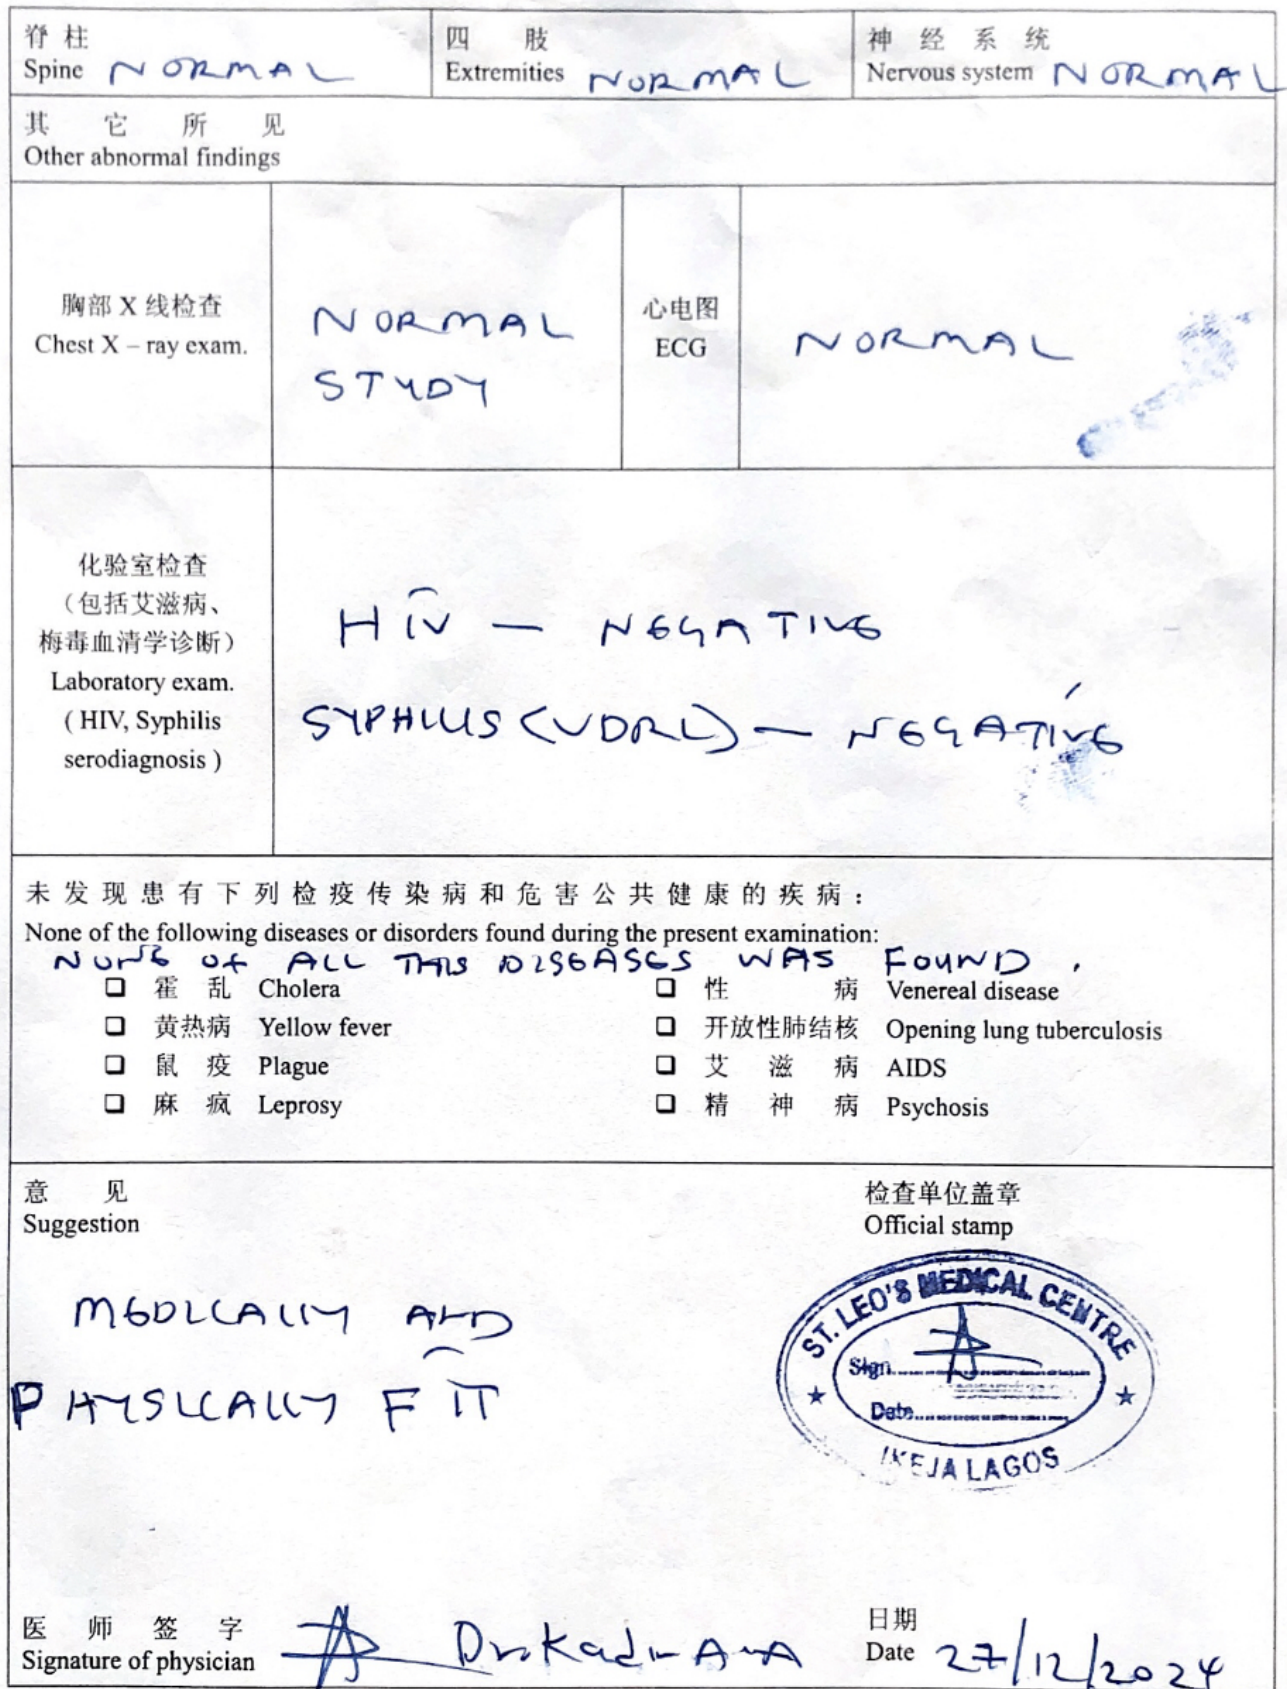 脊柱 四肢 神经系统
Spine NORMAL Extremities NORMAL Nervous system NORMAL
其它所见
Other abnormal findings
胸部 X 线检查
Chest X – ray exam.
NORMAL
STUDY
心电图
ECG
NORMAL
化验室检查
（包括艾滋病、
梅毒血清学诊断）
Laboratory exam.
( HIV, Syphilis
serodiagnosis )
HIV — NEGATIVE
SYPHILIS (VDRL) — NEGATIVE
未发现患有下列检疫传染病和危害公共健康的疾病：
None of the following diseases or disorders found during the present examination:
NONE OF ALL THIS DISEASES WAS FOUND.
❑ 霍乱 Cholera ❑ 性病 Venereal disease
❑ 黄热病 Yellow fever ❑ 开放性肺结核 Opening lung tuberculosis
❑ 鼠疫 Plague ❑ 艾滋病 AIDS
❑ 麻疯 Leprosy ❑ 精神病 Psychosis
意见
Suggestion
MEDICALLY AND
PHYSICALLY FIT
检查单位盖章
Official stamp
ST. LEO'S MEDICAL CENTRE
Sign
Date
IKEJA LAGOS
医师签字
Signature of physician Dr.
日期
Date 27/12/2024